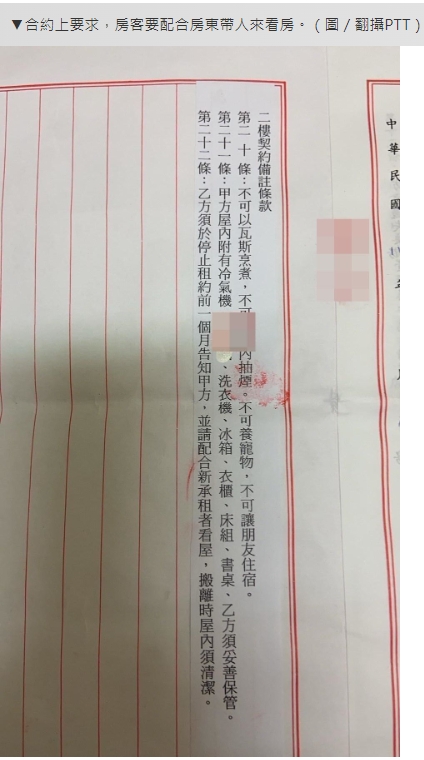 ▼合約上要求，房客要配合房東帶人來看房。（圖／翻攝PTT）
中華民國
二樓契約備註條款
第二十條：不可以瓦斯烹煮，不可 內抽煙。不可養寵物，不可讓朋友住宿。
第二十一條：甲方屋內附有冷氣機 、洗衣機、冰箱、衣櫃、床組、書桌、乙方須妥善保管。
第二十二條：乙方須於停止租約前一個月告知甲方，並請配合新承租者看屋，搬離時屋內須清潔。